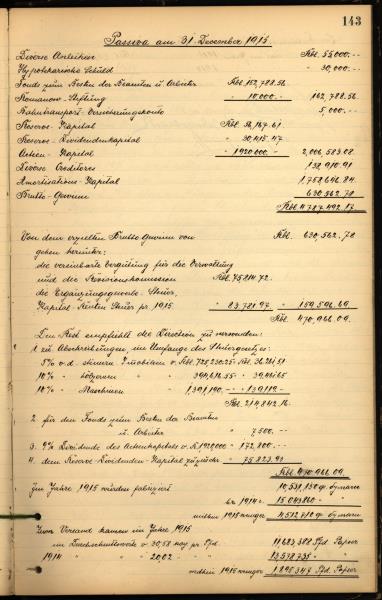 143
Passiva am 31. December 1915
Diverse Anleihen Rbl. 55,000.--
Hypothekarische Schuld " 30,000.--
Fonds zum Besten der Beamten u. Arbeiter Rbl. 152,788.56.
Romanow-Stiftung " 10,000.-- " 162,788.56.
Bahntransport-Versicherungskonto " 5,000.--
Reserve-Kapital
Reserve-Dividendenkapital " 30,415.47
Actien-Kapital " 1920000.-- " 2,006,583.08.
Diverse Creditores
Amortisations-Kapital
Brutto-Gewinn " 630,562.78
Von dem erzielten Brutto Gewinn von Rbl. 630,562.78
gehen herunter:
die vereinbarte Vergütung für die Verwaltung
und die Revisionskommission Rbl. 75814.72.
die Ergänzungsgewerbe-Steuer,
Kapital Renten Steuer pr. 1915 " 83781.97 " 159,596.69.
Rbl. 470,966.09.
Den Rest empfiehlt die Direction zu verwenden:
1. zu Abschreibungen, im Umfange des Steuergesetzes:
5% v. d. Rbl. 725,230.25 Rbl.
10% " hölzernen " 394,616.55 " 39,461.65
10% " Maschinen " 1,391,190.-- " 139,119.--
Rbl. 214,842.16
2. für den Fonds zum Besten der Beamten
u. Arbeiter " 7,500.--
3. 9% Dividende des Actienkapitals v. R. 1920000 " 172,800.--
4. dem Reserve-Dividenden-Kapital " 75,823.93
Rbl. 470,966.09.
Im Jahre 1915 wurden fabriziert
1914
mithin 1915 weniger
Zum Versand kamen im Jahre 1915
im Durchschnittswerte v. 30,58 pr. Pfd. 11,683,388 Pfd. Papier
1914 " " 20,02 " " 13,578,735 "
mithin 1915 weniger 1,895,347 Pfd. Papier